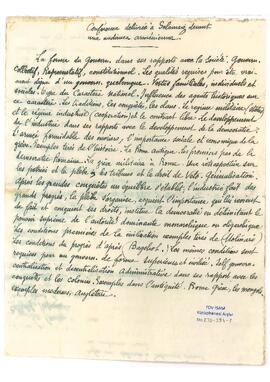 Conférence délivrée à Salamas devant
une audience arménienne
La forme du Gouvern. dans ses rapports avec la Société. Gouvern.
Collectif, Représentatif, constitutionnel. Les qualités requises pour être vrai-
ment digne d'un gouvern. quelconque. Vertus familiales, individuelles et
sociales. du Caractère National. Influences des agents historiques sur
ce caractère. les traditions, les conquêtes, les dans. Le régime militaire
et le régime industriel (coopération) et le contrat libre. Le développement
de l'industrie dans ses rapports avec le développement de la démocratie:
l'armée formidable des meneurs, l'importance sociale et économique de la
grève. exemples tirés de l'histoire. La Rome antique. les premiers pas de la
démocratie romaine. La grève militaire à Rome. Une rétrospection sur
les patriciens et la plèbe. Les tribuns et le droit de Veto. Généralisation:
après les grandes conquêtes un équilibre s'établit, l'industrie fait des
grands progrès, la plèbe s'organise, acquiert l'importance, qui lui revient
de fait et conquiert ses droits, institue la democratie en délimitant le
pouvoir suprême de l'autorité monarchique ou oligarchique
les conditions premières de la civilisation exemples tirés de (Molinari)
les conditions du progrès d'après (Bagehot). Les mêmes conditions sont
requises pour un gouvern. de forme supérieure et évolué, self gouvern.
centralisation et décentralisation Administrative dans ses rapports avec les
conquêtes et les colonies. exemples dans l'antiquité. Rome Grèce, les
exemples modernes, Angleterre.
TÜSTAV
Kütüphanesi Arşivi